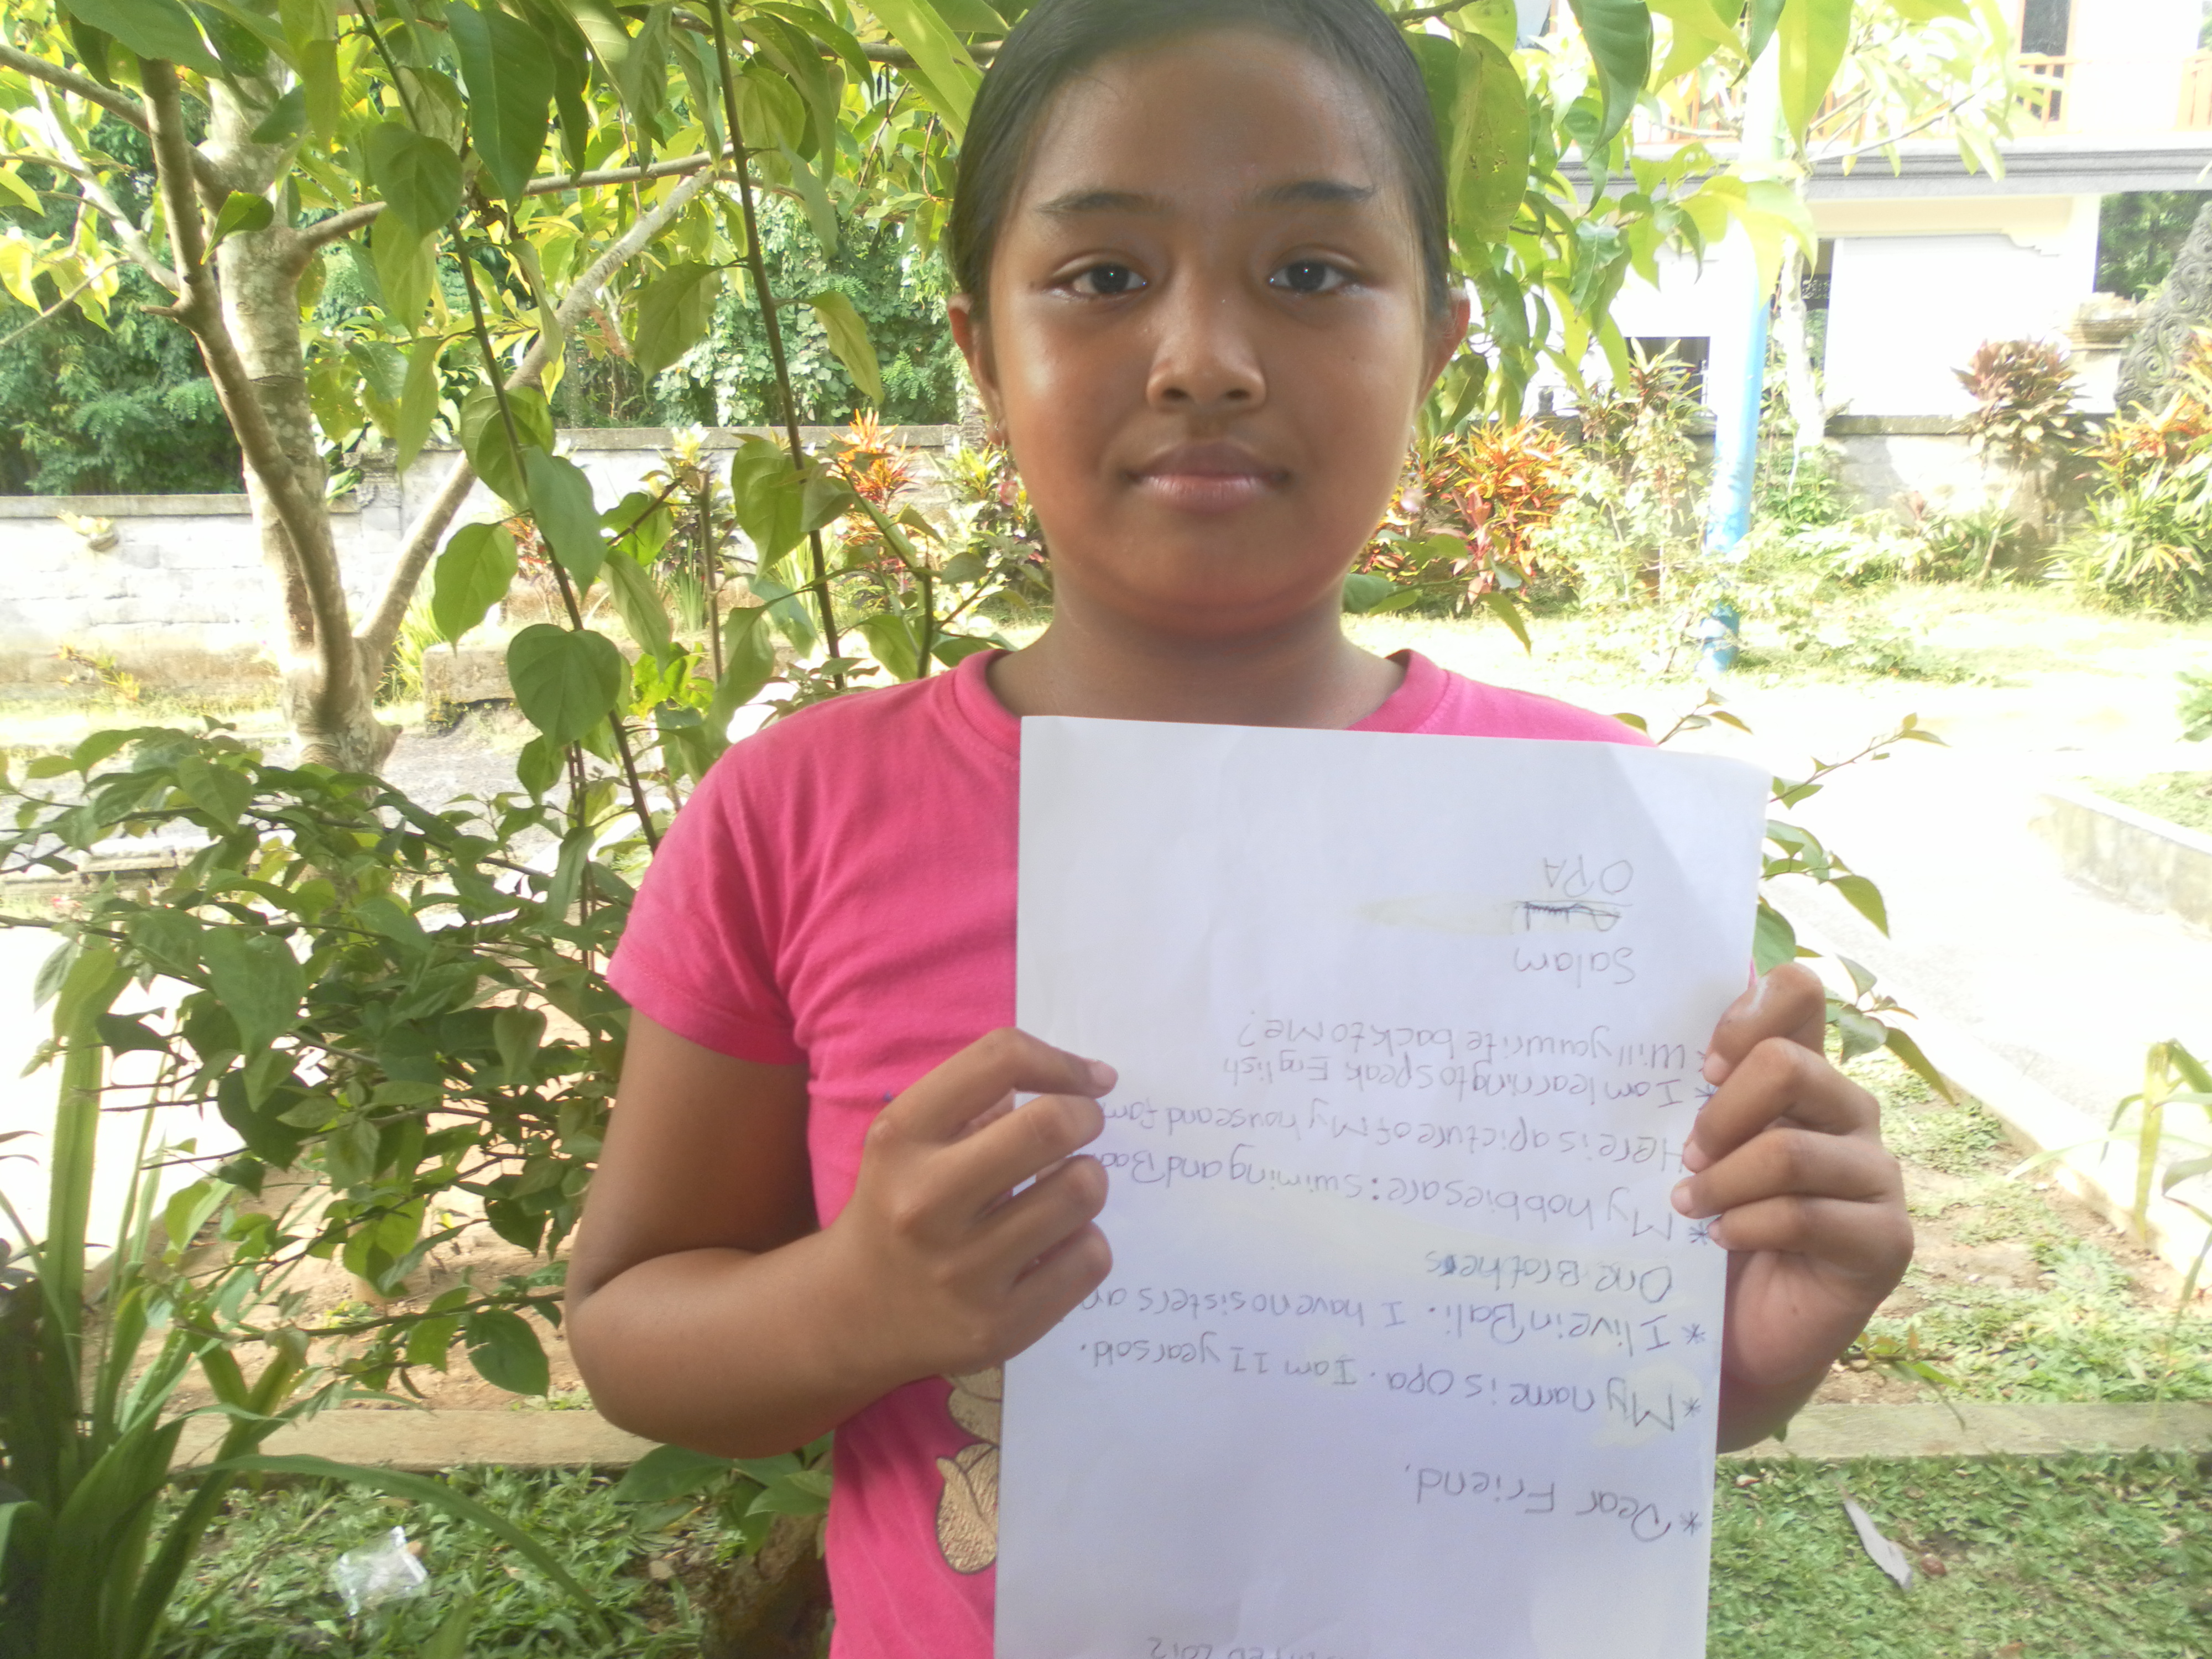 2012
* Dear Friend.
* My name is Opa. I am 11 years old.
* I live in Bali. I have no sisters
One Brothers
* My hobbies are: swiming and
Here is a picture of My house and
* I am learning to speak English
* Will you write back to Me?
Salam
OPA